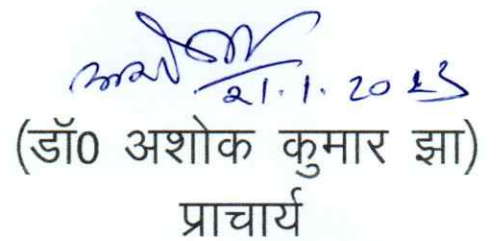 21.1.2023
(डॉ0 अशोक कुमार झा)
प्राचार्य